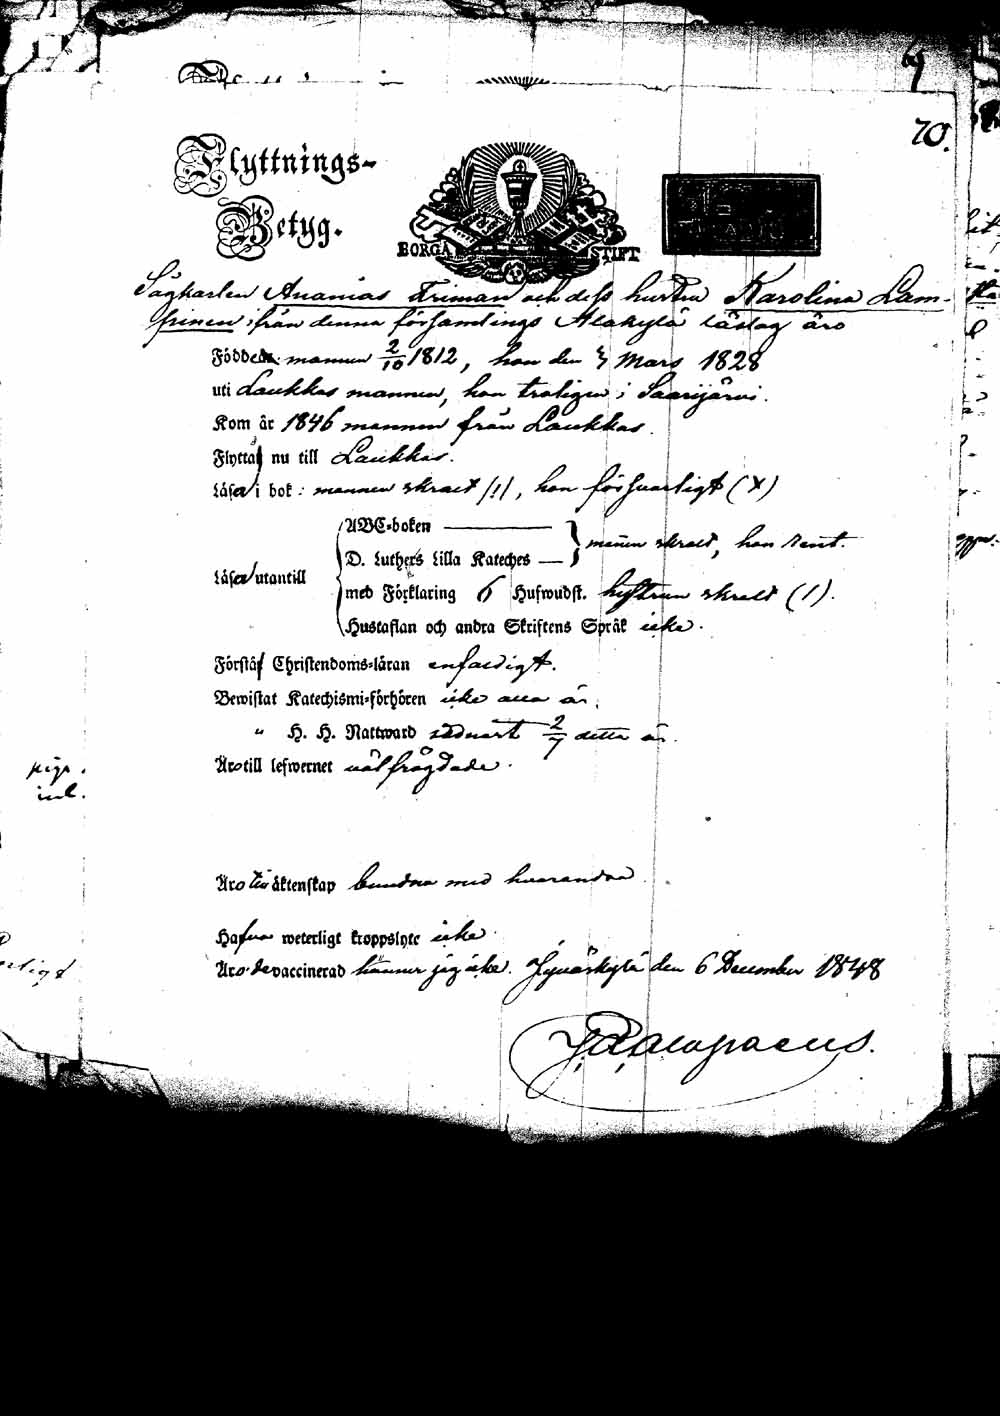 69
70.
Flyttnings-
Betyg.
BORGÅ STIFT
Sågkarlen Ananias Friman och dess hustru Karolina Lam-
pinen från denna församlings Alakylä läslag äro
Födde mannen 2/10 1812, hon den 7 Mars 1828
uti Laukkas mannen, hon troligen i Saarijärvi.
Kom år 1846 mannen från Laukkas.
Flytta nu till Laukkas.
Läsa i bok: mannen skralt /!/, hon försvarligt (X)
ABC-boken
D. Luthers Lilla Kateches mannen skralt, hon rent.
Läsa utantill
med Förklaring 6 Hufwudst. hustrun skralt (!).
Hustaflan och andra Skriftens Språk icke.
Förstå Christendoms-läran enfaldigt.
Bewistat Katechismi-förhören icke alla år.
" H. H. Nattward sednast 2/7 detta år.
Äro till lefwernet välfrägdade.
Äro till äktenskap bundna med hvarandra.
Hafva weterligt kroppslyte icke.
Äro de vaccinerad känner jag icke. Jyväskylä den 6 December 1848